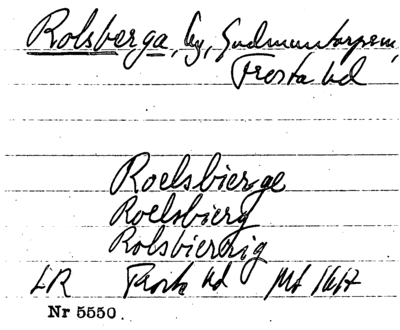 Rolsberga, by, Gudmuntorpsn,
Frosta hd
Roelsbierge
Roelsbierg
Rolsbierrig
LR Frosta hd
Nr 5550.